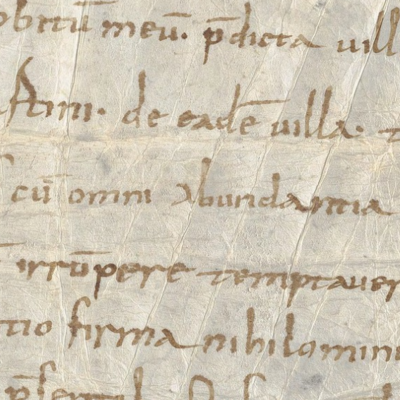 obitū meū. p̄dicta vill
stini. de eadē villa.
cū omni abundantia
irrūpere temptaver
tio firma nihilomin